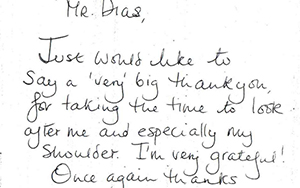 Mr. Dias,
Just would like to
say a 'very' big thankyou,
for taking the time to look
after me and especially my
shoulder. I'm very grateful!
Once again thanks